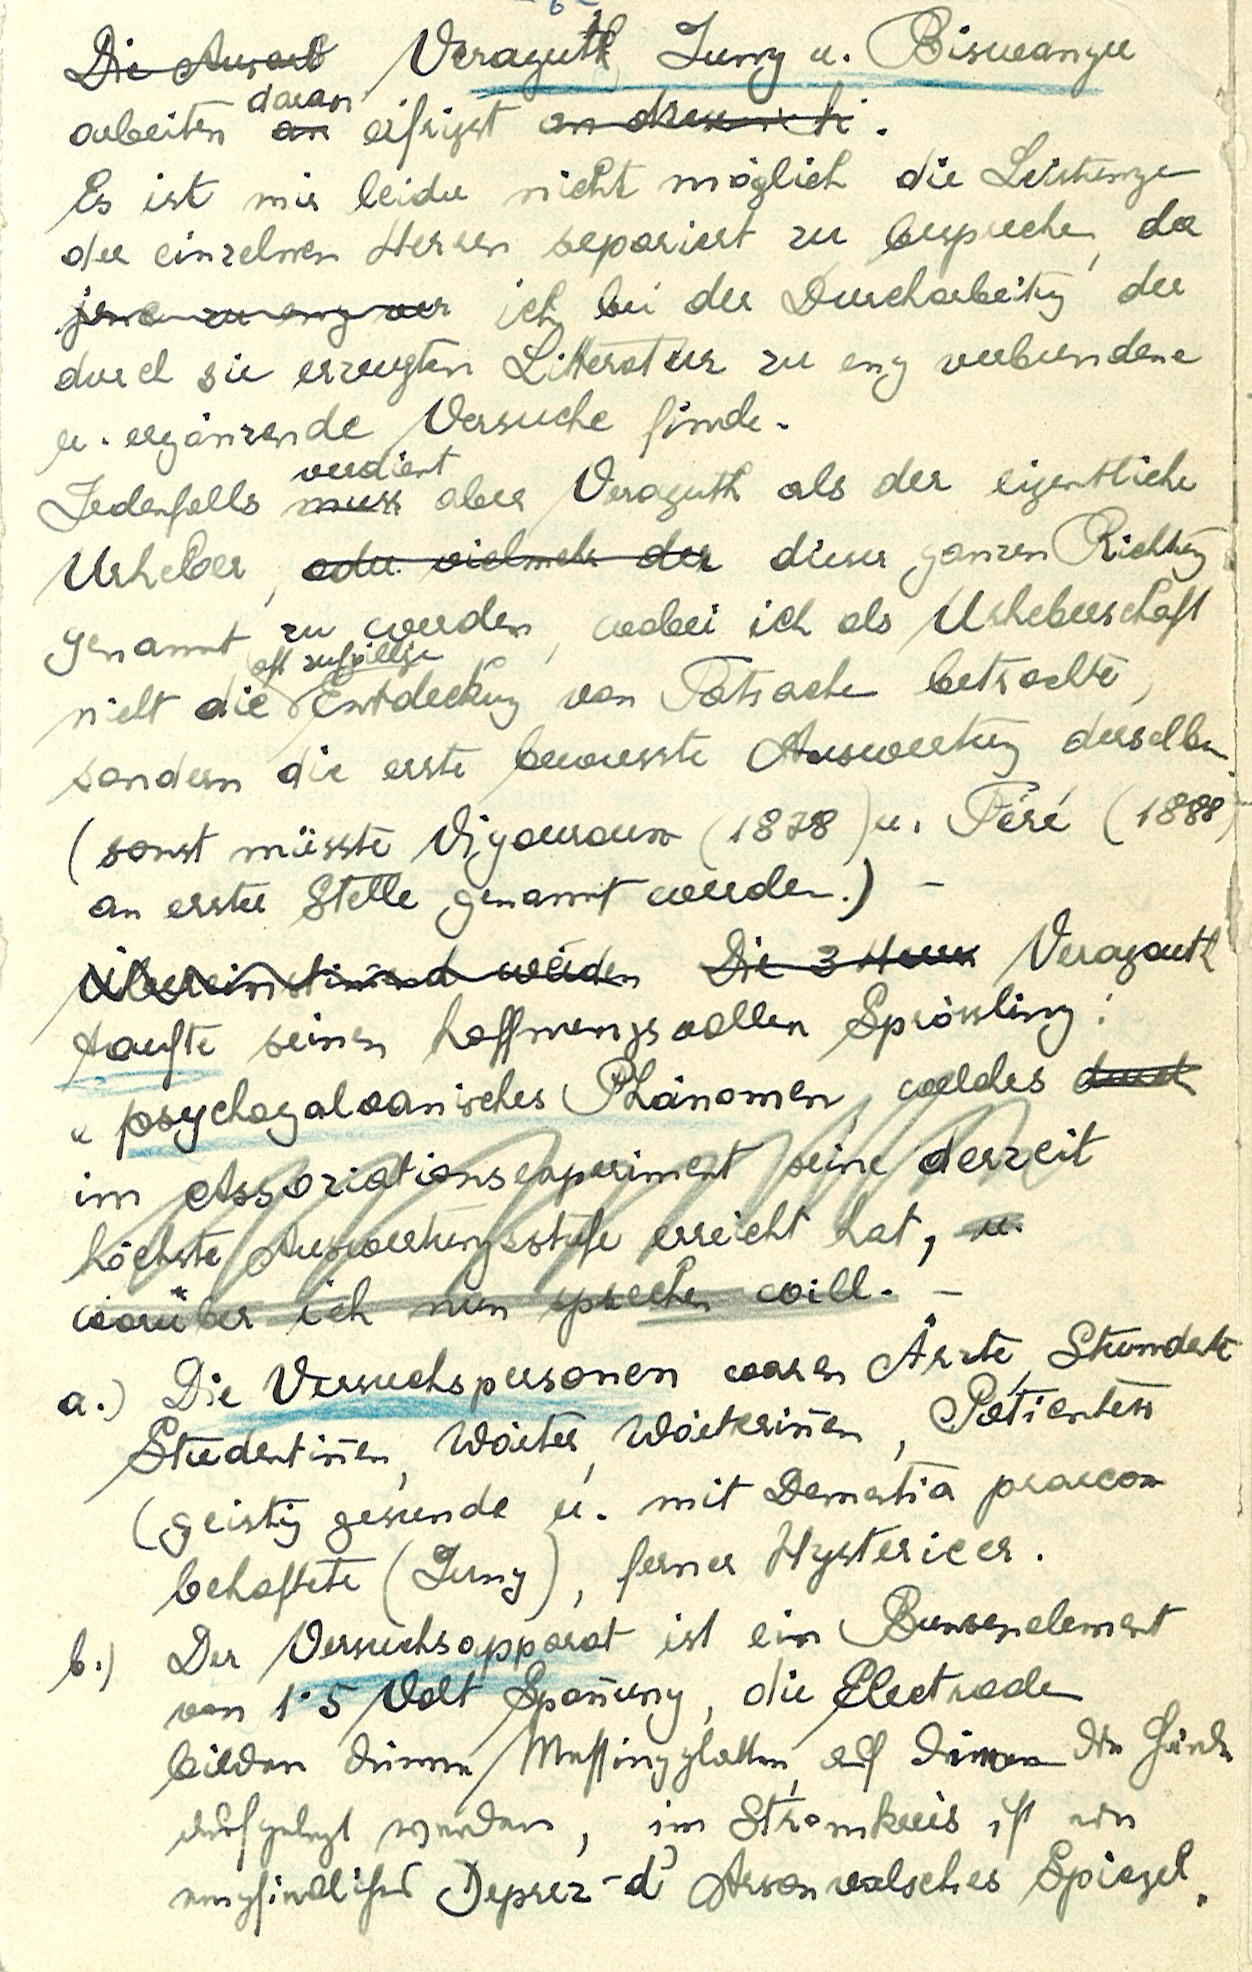 - 6 -
Die Ausarb Veraguth Jung u. Biswanger
daran
arbeiten an eifrigst an .
Es ist mir leider nicht möglich die Leistungen
der einzelnen Herren separiert zu besprechen, da
jene zu eng ver ich bei der Durcharbeitung der
durch sie erzeugten Litteratur zu eng verbundene
u. ergänzende Versuche finde.
verdient
Jedenfalls muss aber Veraguth als der eigentliche
Urheber, oder vielmehr der dieser ganzen Richtung
genannt zu werden, wobei ich als Urheberschaft
oft zufällige
nicht die Entdeckung von Tatsachen betrachte,
sondern die erste bewusste Auswertung derselben
(sonst müsste Vigouroux (1878) u. Féré (1888)
an erster Stelle genannt werden.) -
Übereinstimmend werden Die 3 Herren Veraguth
taufte seinen hoffnungsvollen Sprössling:
" psychogalvanisches Phänomen, welches durch
im Assoziationsexperiment seine derzeit
höchste Auswertungsstufe erreicht hat, u.
worüber ich nun sprechen will. -
a.) Die Versuchspersonen waren Ärzte, Stundente
Studentiñen, Wärter, Wärteriñen, Patienten
(geistig gesunde u. mit Dementia praecox
behaftete (Jung), ferner Hystericer.
b.) Der Versuchsapparat ist ein Bunsenelement
von 1·5 Volt Spañung, die Electroden
bilden dünne Messingplatten, auf denen die Hände
aufgelegt werden, im Stromkreis ist ein
empfindliches Deprez-d'Arsonvalsches Spiegel.